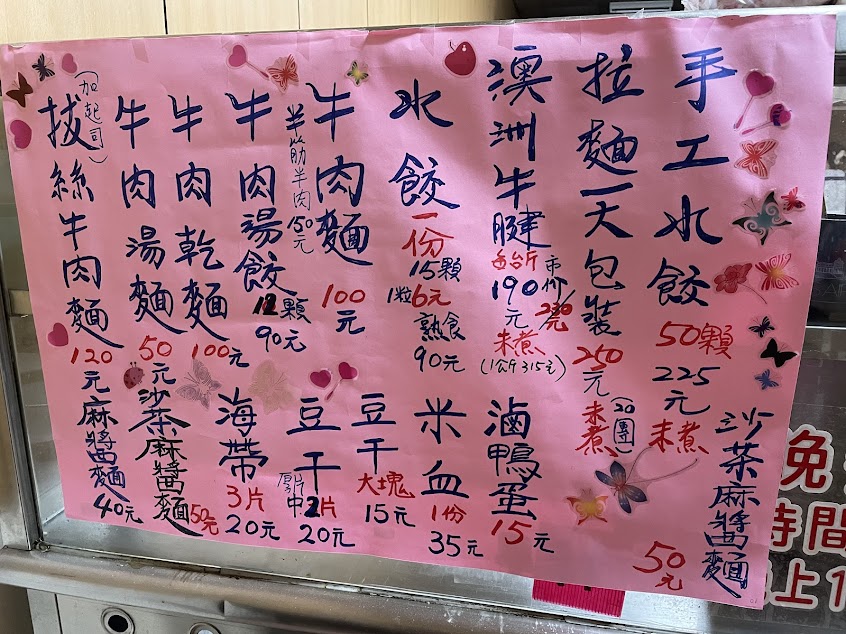 手工水餃
50顆
225
元
未煮
沙茶麻醬麵
50
元
拉麵一大包裝
250
元
(20團)
未煮
澳洲牛腱
每台斤
190
元
市價/230元
未煮
(1公斤315元)
滷鴨蛋
15元
水餃
一份
15顆
1粒6元
熟食
90元
米血
1份
35元
牛肉麵
100
元
半筋半肉150元
豆干
大塊
15元
牛肉湯餃
12顆
90元
豆干
厚片
中2片
20元
牛肉乾麵
100元
海帶
3片
20元
牛肉湯麵
50
元
沙茶麻醬麵
50元
拔絲牛肉麵
(加起司)
120
元
麻醬麵
40元
免
時間
上1